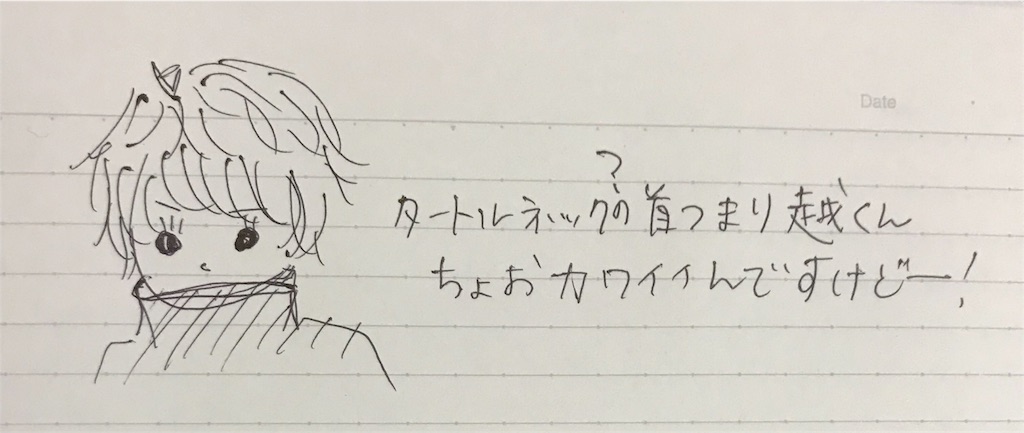 Date
?
タートルネックの首つまり越くん
ちょおカワイイんですけどー!